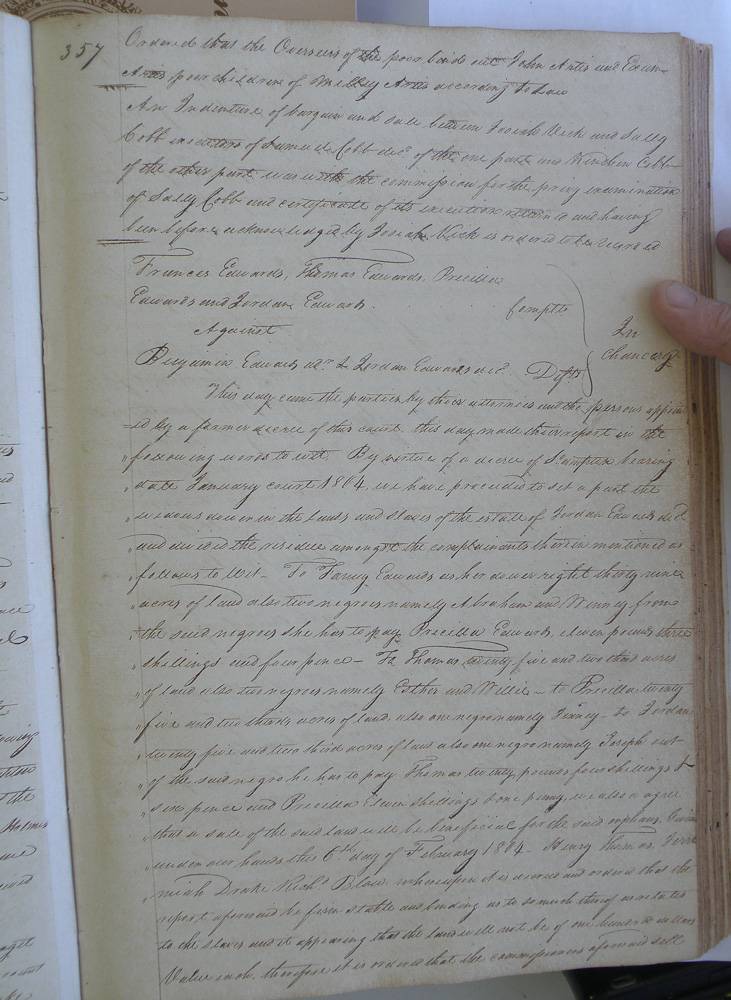 357
Ordered that the Overseers of the poor bind out John Artis and Exum
Artis poor children of Milly Artis according to Law
An Indenture of bargain and sale between Josiah Kick and Sally
Cobb executors of Samuel Cobb decd. of the one part and Kindrin Cobb
of the other part was with the commission for the privy examination
of Sally Cobb and certificate of its execution returned and having
been before acknowledged by Josiah Kick is ordered to be recorded
Frances Edwards, Thomas Edwards, Precilla
Edwards and Jordan Edwards.
Complts
Against
In
Chancery
Benjamin Edwards adr. of Jordan Edwards decd. Defts
This day came the parties by their attornies and the persons appoin
=ted by a former decree of this court this day made their report in the
following words to wit. By virtue of a decree of Southampton bearing
date January court 1804, we have proceeded to set a part the
widows dower in the lands and slaves of the estate of Jordan Edwards decd
and divided the residue amongst the complainants therein mentioned as
follows to wit - To Fanny Edwards as her dower right thirty nine
acres of land also two negroes namely Abraham and Winney from
the said negroes she has to pay Precilla Edwards, eleven pounds three
shillings and four pence - To Thomas twenty five and two thirds acres
of land also two negroes namely Esther and Willie - to Precilla twenty
five and two thirds acres of land also one negro namely Finney - to Jordan
twenty five and two third acres of land also one negro namely Joseph out
of the said negro he has to pay Thomas twenty pounds four shillings &
six pence and Precilla Eleven shillings & one penny, we also a agree
that a sale of the said land will be beneficial for the said orphans, Given
under our hands this 6th. day of February 1804. Henry Thomas, Jere
miah Drake Richd. Blow. whereupon it is decreed and ordered that the
report aforesaid be firm stable and binding as to so much thereof as relates
to the slaves and it appearing that the land will not be of one hundred dollars
Value each, therefore it is ordered that the commissioners aforesaid sell